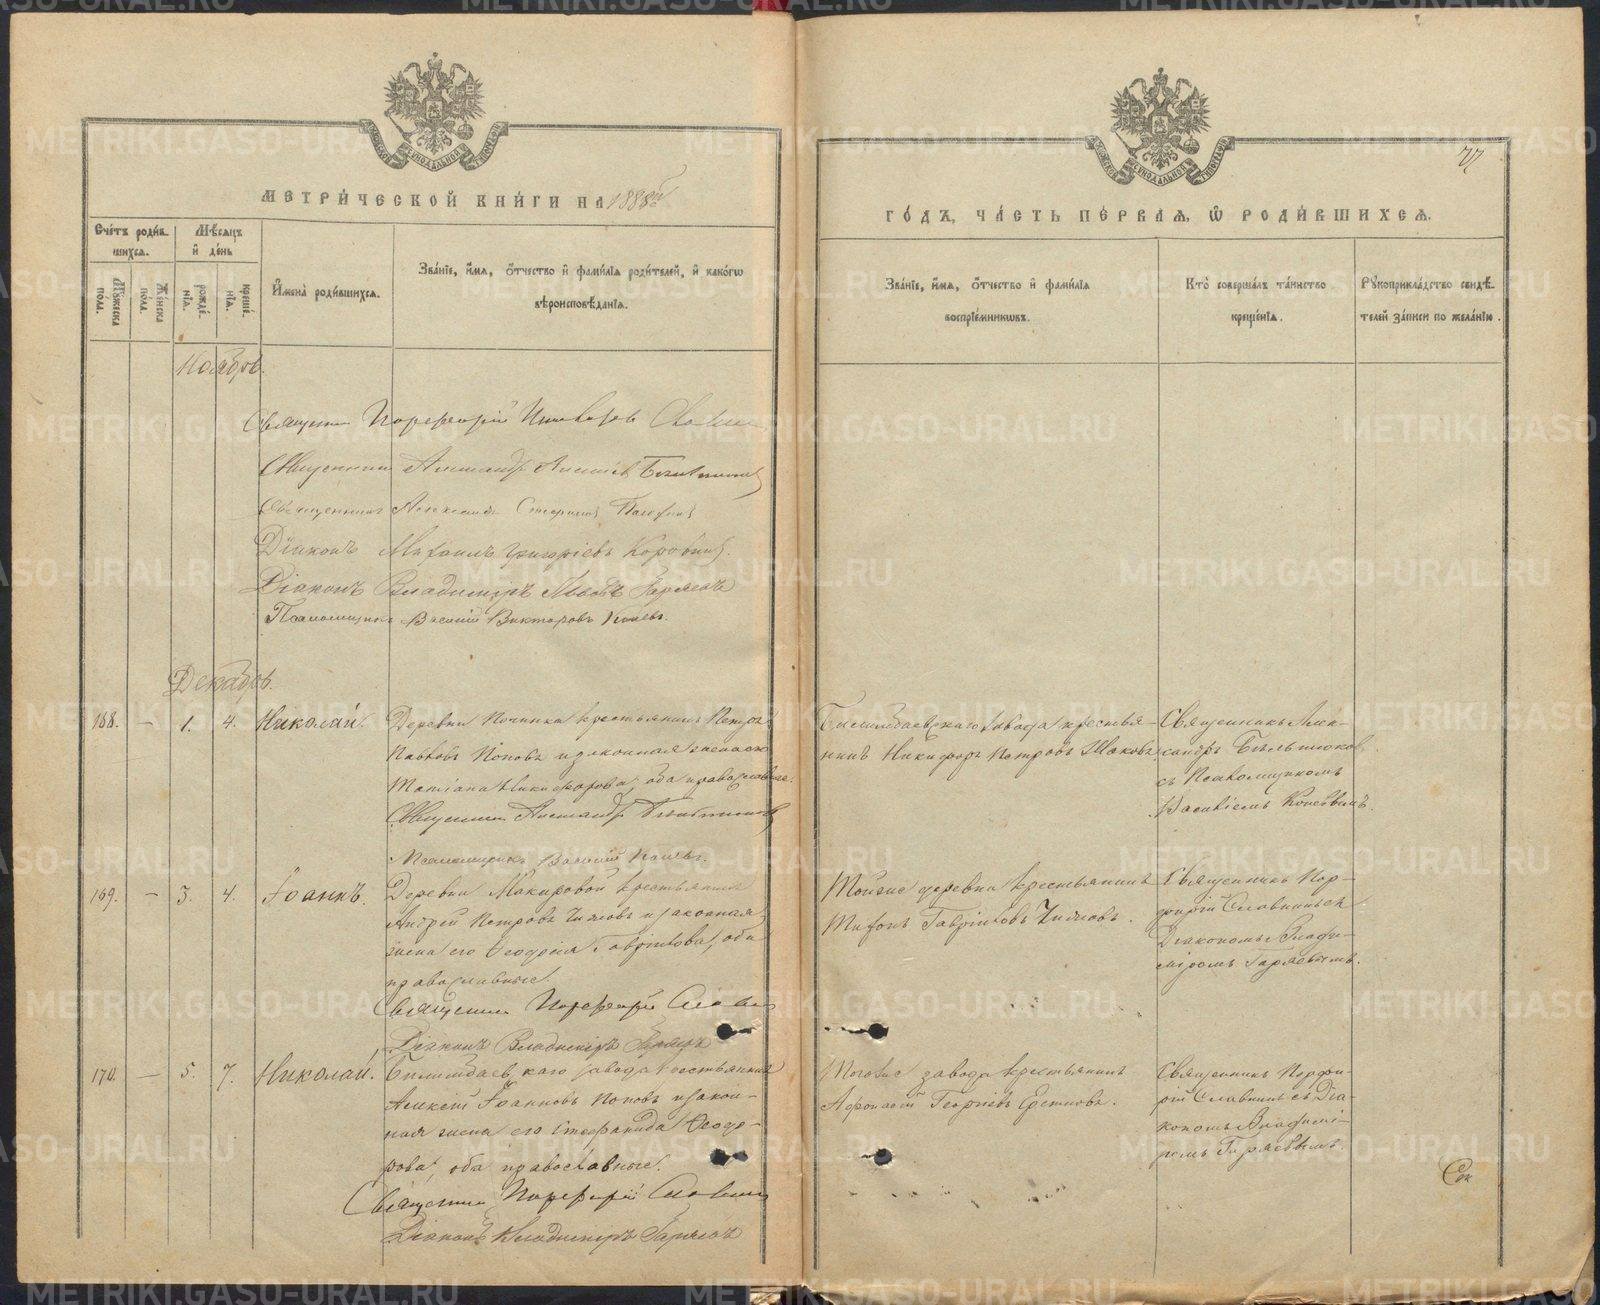 МЕТРИ́ЧЕСКОЙ КНИ́ГИ НА 1888й
Счетъ роди́в-
шихся.
Мѣсяцъ
и҆ де́нь
Мꙋ́жеска по́ла.
Же́нска по́ла.
рожде́нїѧ.
креще́нїѧ.
И҆мена̀ роди́вшихся.
Зва́нїе, и҆́мѧ, ѻ҆́тчество и҆ фами́лїѧ роди́телей, и҆ како́гѡ
вѣроисповѣ́данїѧ.
Ноябрь.
Священник Порфирій
Священник Александр
Священник Александр
Діаконъ Михаилъ Григоріевъ Коровинъ.
Діаконъ Владиміръ Львовъ Гаряевъ
Псаломщикъ Василій Викторовъ Конев.
Декабрь.
168. — 1. 4. Николай. Деревни Починка крестьянинъ Петръ
Павловъ Поповъ и законная жена его
Татіана Никифорова, оба православные.
Священник Александр
Псаломщикъ Василій Конев.
169. — 3. 4. Іоаннъ. Деревни Макаровой крестьянинъ
Андрей Петровъ и законная
жена его Ѳеодосія Гавриилова, оба
православные
Священник Порфирій
Діаконъ Владиміръ Гаряевъ
170. — 5. 7. Николай. Билимбаевскаго завода крестьянинъ
Алексій Іоанновъ Поповъ и закон-
ная жена его Стефанида Ѳеодо-
рова, оба православные.
Священник Порфирій
Діаконъ Владиміръ Гаряевъ
77
ГО́ДЪ, ЧА́СТЬ ПЕ́РВАѦ, Ѡ҆ РОДИ́ВШИХСѦ.
Зва́нїе, и҆́мѧ, ѻ҆́тчество и҆ фами́лїѧ
воспрїе́мникѡвъ.
Кто̀ соверша́лъ та́инство
креще́нїѧ.
Рꙋкоприкла́дство свидѣ́-
телей за́писи по жела́нїю.
Билимбаевскаго завода крестья-
нинъ Никифоръ Петровъ
Священникъ Алек-
сандръ
съ Псаломщикомъ
Василіемъ Коневымъ.
Той же деревни крестьянинъ
Гавриловъ
Священникъ Пор-
фирій Славнинъ съ
Діакономъ Влади-
міромъ Гаряевымъ.
Того же завода крестьянинъ
Афанасій Георгіевъ
Священникъ Порфи-
рій Славнинъ съ Діа-
кономъ Владимі-
ромъ Гаряевымъ.
METRIKI.GASO-URAL.RU